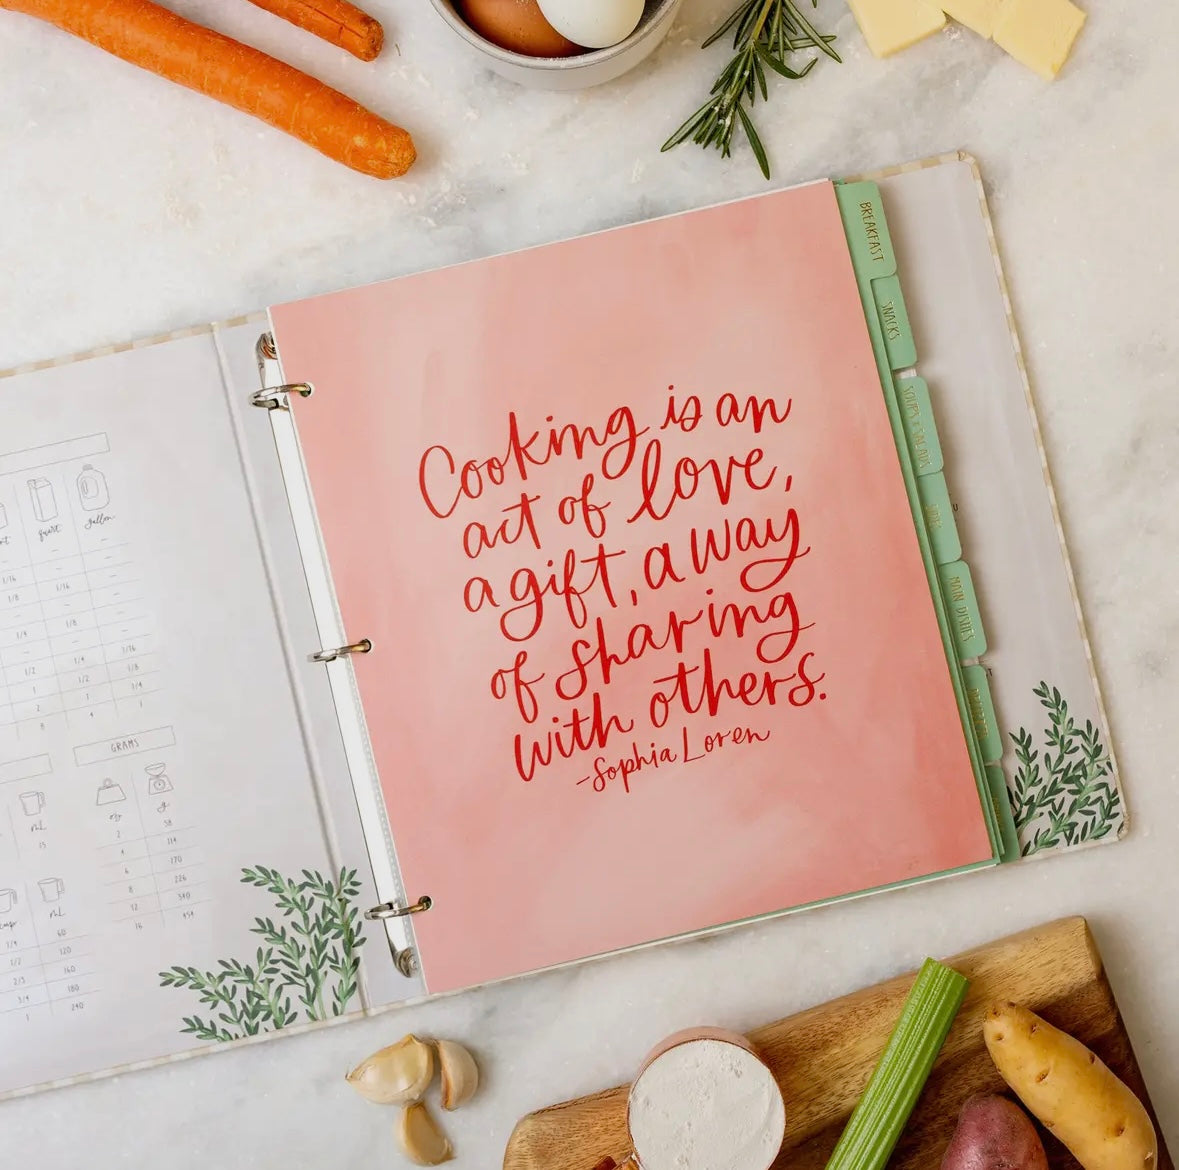 Cooking is an
act of love,
a gift, a way
of sharing
with others.
-Sophia Loren
BREAKFAST
SNACKS
SOUPS & SALADS
SIDES
MAIN DISHES
quart
gallon
1/16
1/16
1/8
1/4
1/8
1/2
1/4
1/16
1
1/2
1/8
2
1
1/4
8
4
1
GRAMS
oz
g
2
58
4
114
6
170
8
226
12
340
16
454
mL
15
cup
mL
1/4
60
1/2
120
2/3
160
3/4
180
1
240